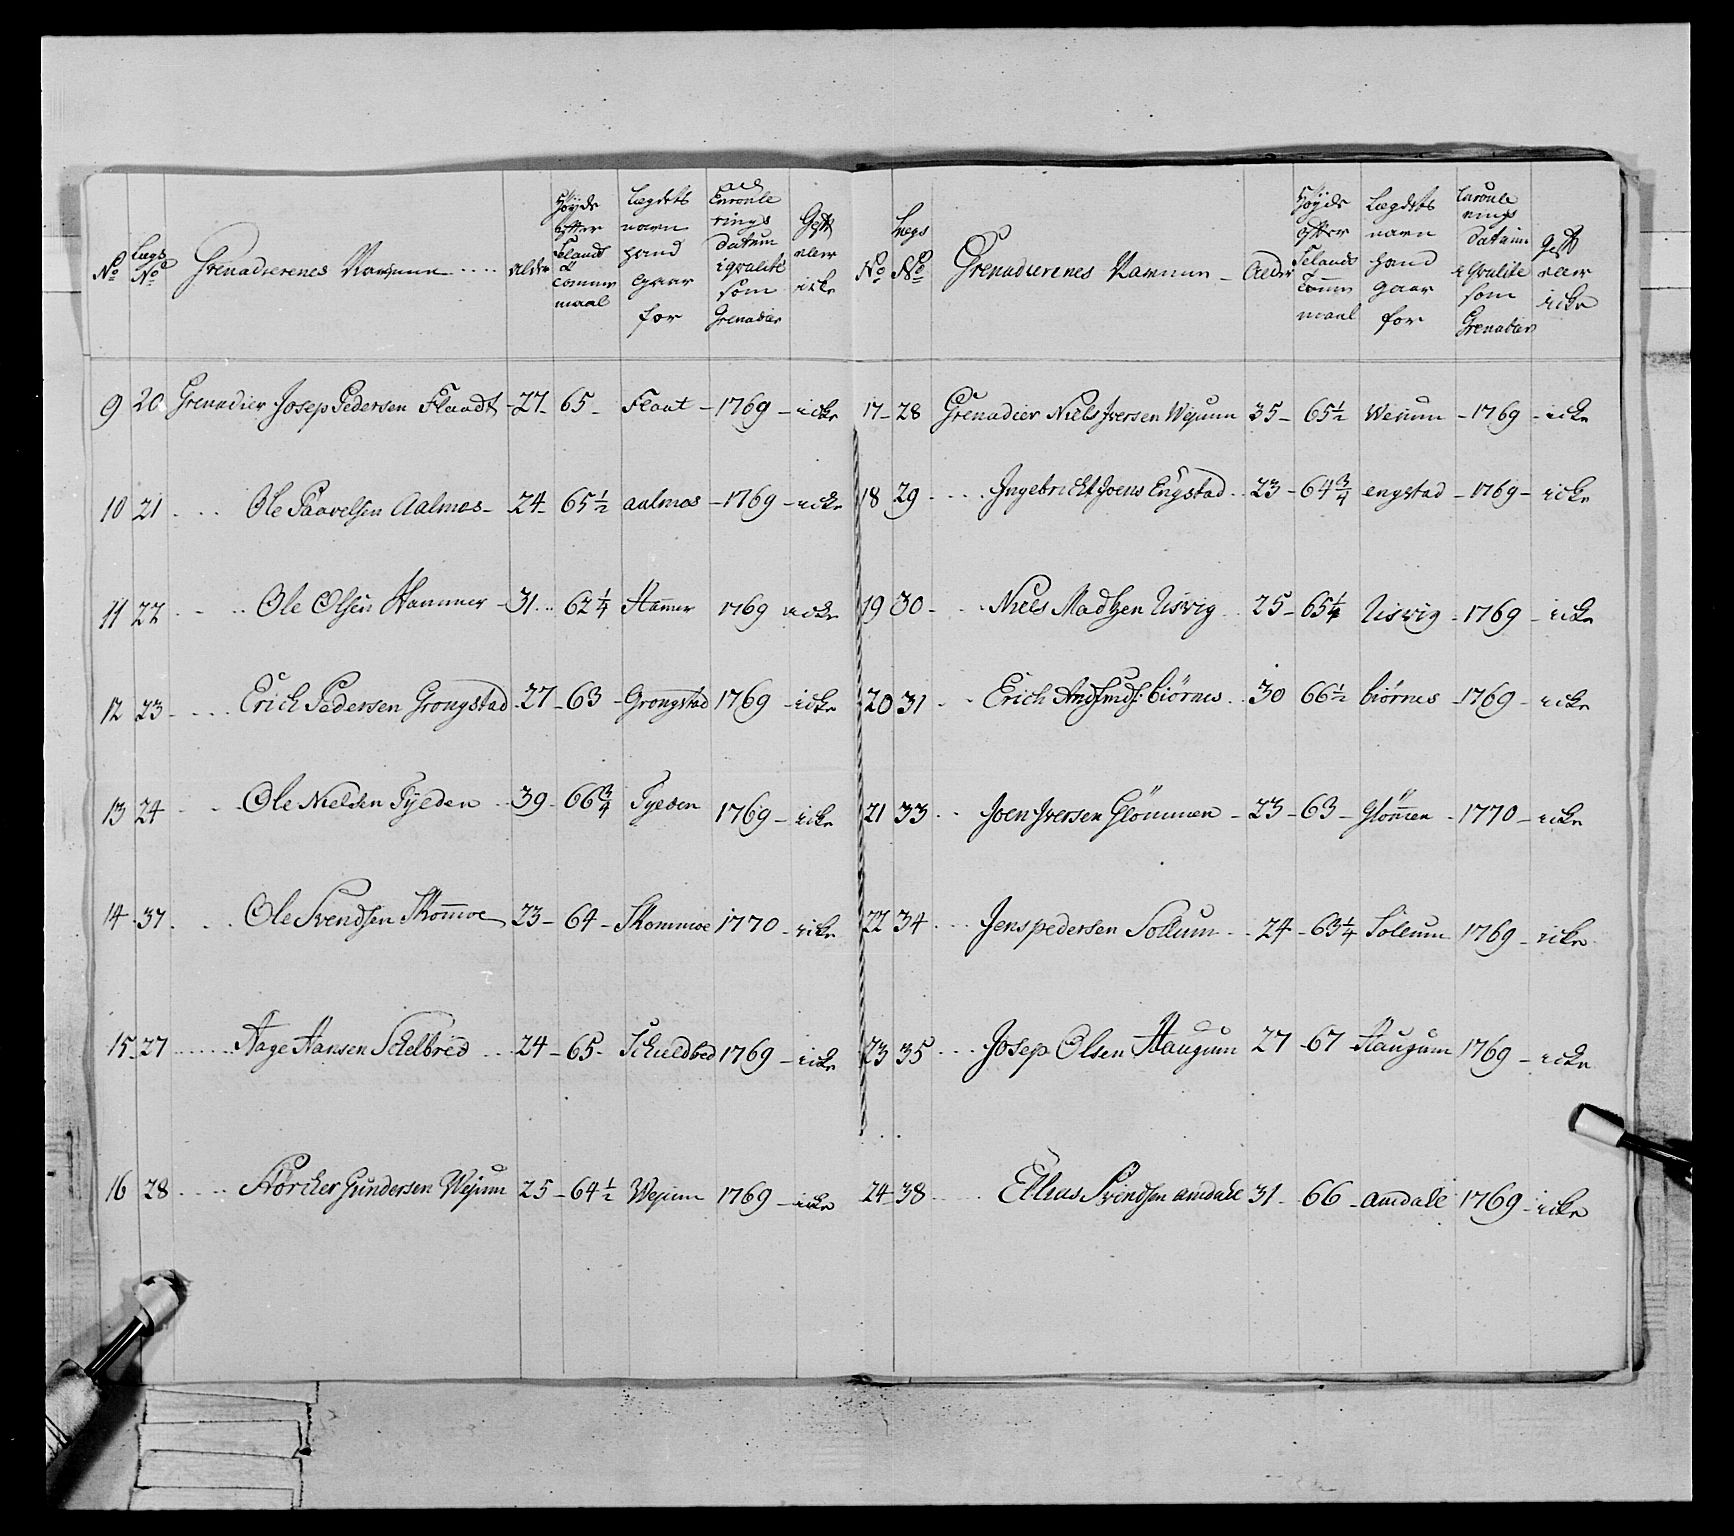 No Lægs No Grenadierenes Nafnene alder Høyde efter Sælands tomme maal Lægdets navn hand gaar for Enroulle rings datum i qvalité som Grenadier Gift eller icke
9 20 Grenadier Josep Pedersen Flaadt - 27 - 65 - Flaat - 1769 - icke
10 21 Ole Paavelsen Aalmos - 24 - 65 1/2 aalmos - 1769 - icke
11 22 Ole Olsen Hammer - 31 62 1/4 Hamer 1769 icke
12 23 Erich Pedersen Grongstad - 27 - 63 - Grongstad 1769 - icke
13 24 Ole Nielsen Tyeden 39 - 66 3/4 Tyeden 1769 - icke
14 37 Ole Svendsen Skomoe 23 - 64 - Skommoe 1770 - icke
15 27 Aage Hansen Schelbred 24 - 65 - 1769 - icke
16 28 Størcher Gundersen Wejum 25 - 64 1/2 Wejum 1769 - icke
No Lægs No Grenadierenes Nafnene - Alder Høyde efter Sælands tomme maal Lægdets navn hand gaar for Enroulle rings datum i qvalité som Grenadier Gift eller icke
17 - 28 Grenadier Niels Iversen Wejum 35 - 65 1/2 Wejum - 1769 - icke
18 29 Ingebricht Joens Engstad 23 - 64 3/4 engstad - 1769 - icke
19 30 - Niels Madtzen Risvig 25 - 65 1/4 Risvig - 1769 - icke
20 31 - Erich biørnes 30 66 1/2 biørnes - 1769 - icke
21 33 Joen Iversen Glömmen - 23 - 63 - Glömen - 1770 - icke
22 34 Jens pedersen Sollum 24 - 63 1/4 Sollum 1769 - icke
23 35 Josep Olsen Haugum 27 - 67 - Haugum 1769 - icke
24 - 38 Ellias Svendsen amdall 31 - 66 - amdall 1769 - icke